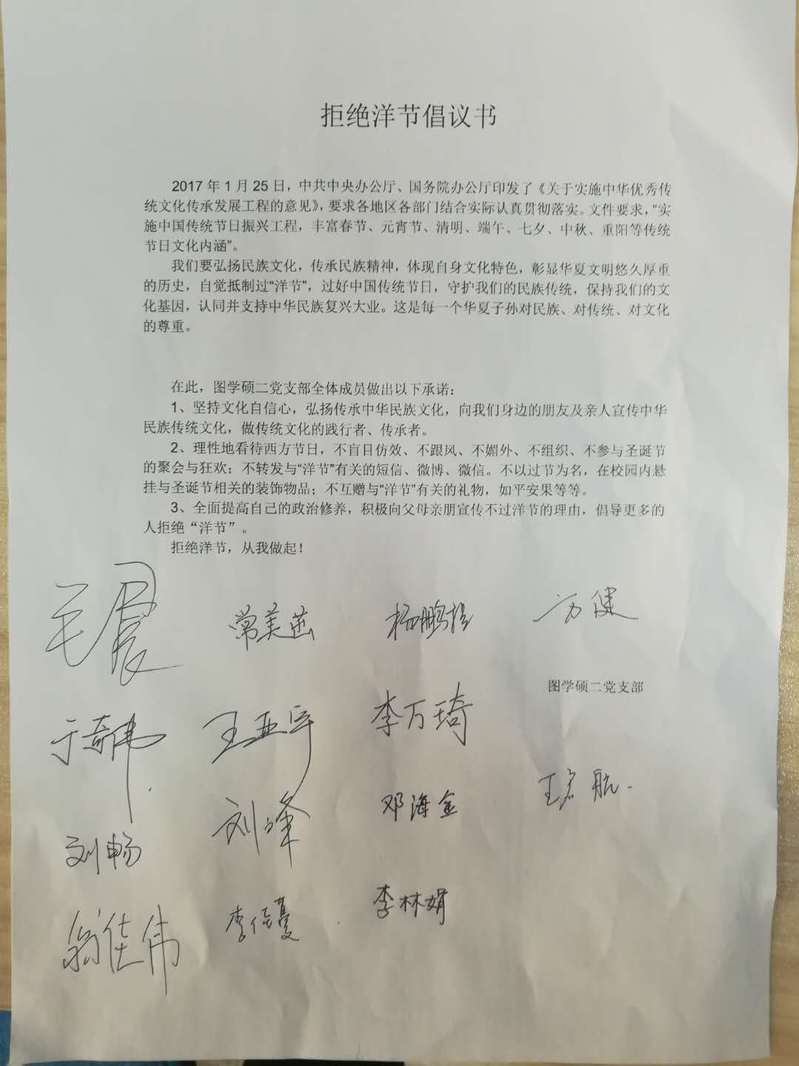 拒绝洋节倡议书
2017年1月25日，中共中央办公厅、国务院办公厅印发了《关于实施中华优秀传
统文化传承发展工程的意见》，要求各地区各部门结合实际认真贯彻落实。文件要求，"实
施中国传统节日振兴工程，丰富春节、元宵节、清明、端午、七夕、中秋、重阳等传统
节日文化内涵"。
我们要弘扬民族文化，传承民族精神，体现自身文化特色，彰显华夏文明悠久厚重
的历史，自觉抵制过"洋节"，过好中国传统节日，守护我们的民族传统，保持我们的文
化基因，认同并支持中华民族复兴大业。这是每一个华夏子孙对民族、对传统、对文化
的尊重。
在此，图学硕二党支部全体成员做出以下承诺：
1、坚持文化自信心，弘扬传承中华民族文化，向我们身边的朋友及亲人宣传中华
民族传统文化，做传统文化的践行者、传承者。
2、理性地看待西方节日，不盲目仿效、不跟风、不媚外、不组织、不参与圣诞节
的聚会与狂欢；不转发与"洋节"有关的短信、微博、微信。不以过节为名，在校园内悬
挂与圣诞节相关的装饰物品；不互赠与"洋节"有关的礼物，如平安果等等。
3、全面提高自己的政治修养，积极向父母亲朋宣传不过洋节的理由，倡导更多的
人拒绝“洋节”。
拒绝洋节，从我做起！
毛晨 常美茵 杨鹏 方健
图学硕二党支部
于奇伟 王亚宇 李万琦
刘畅 刘峰 邓海金 王宏航
翁佳伟 李佳蔓 李林娟